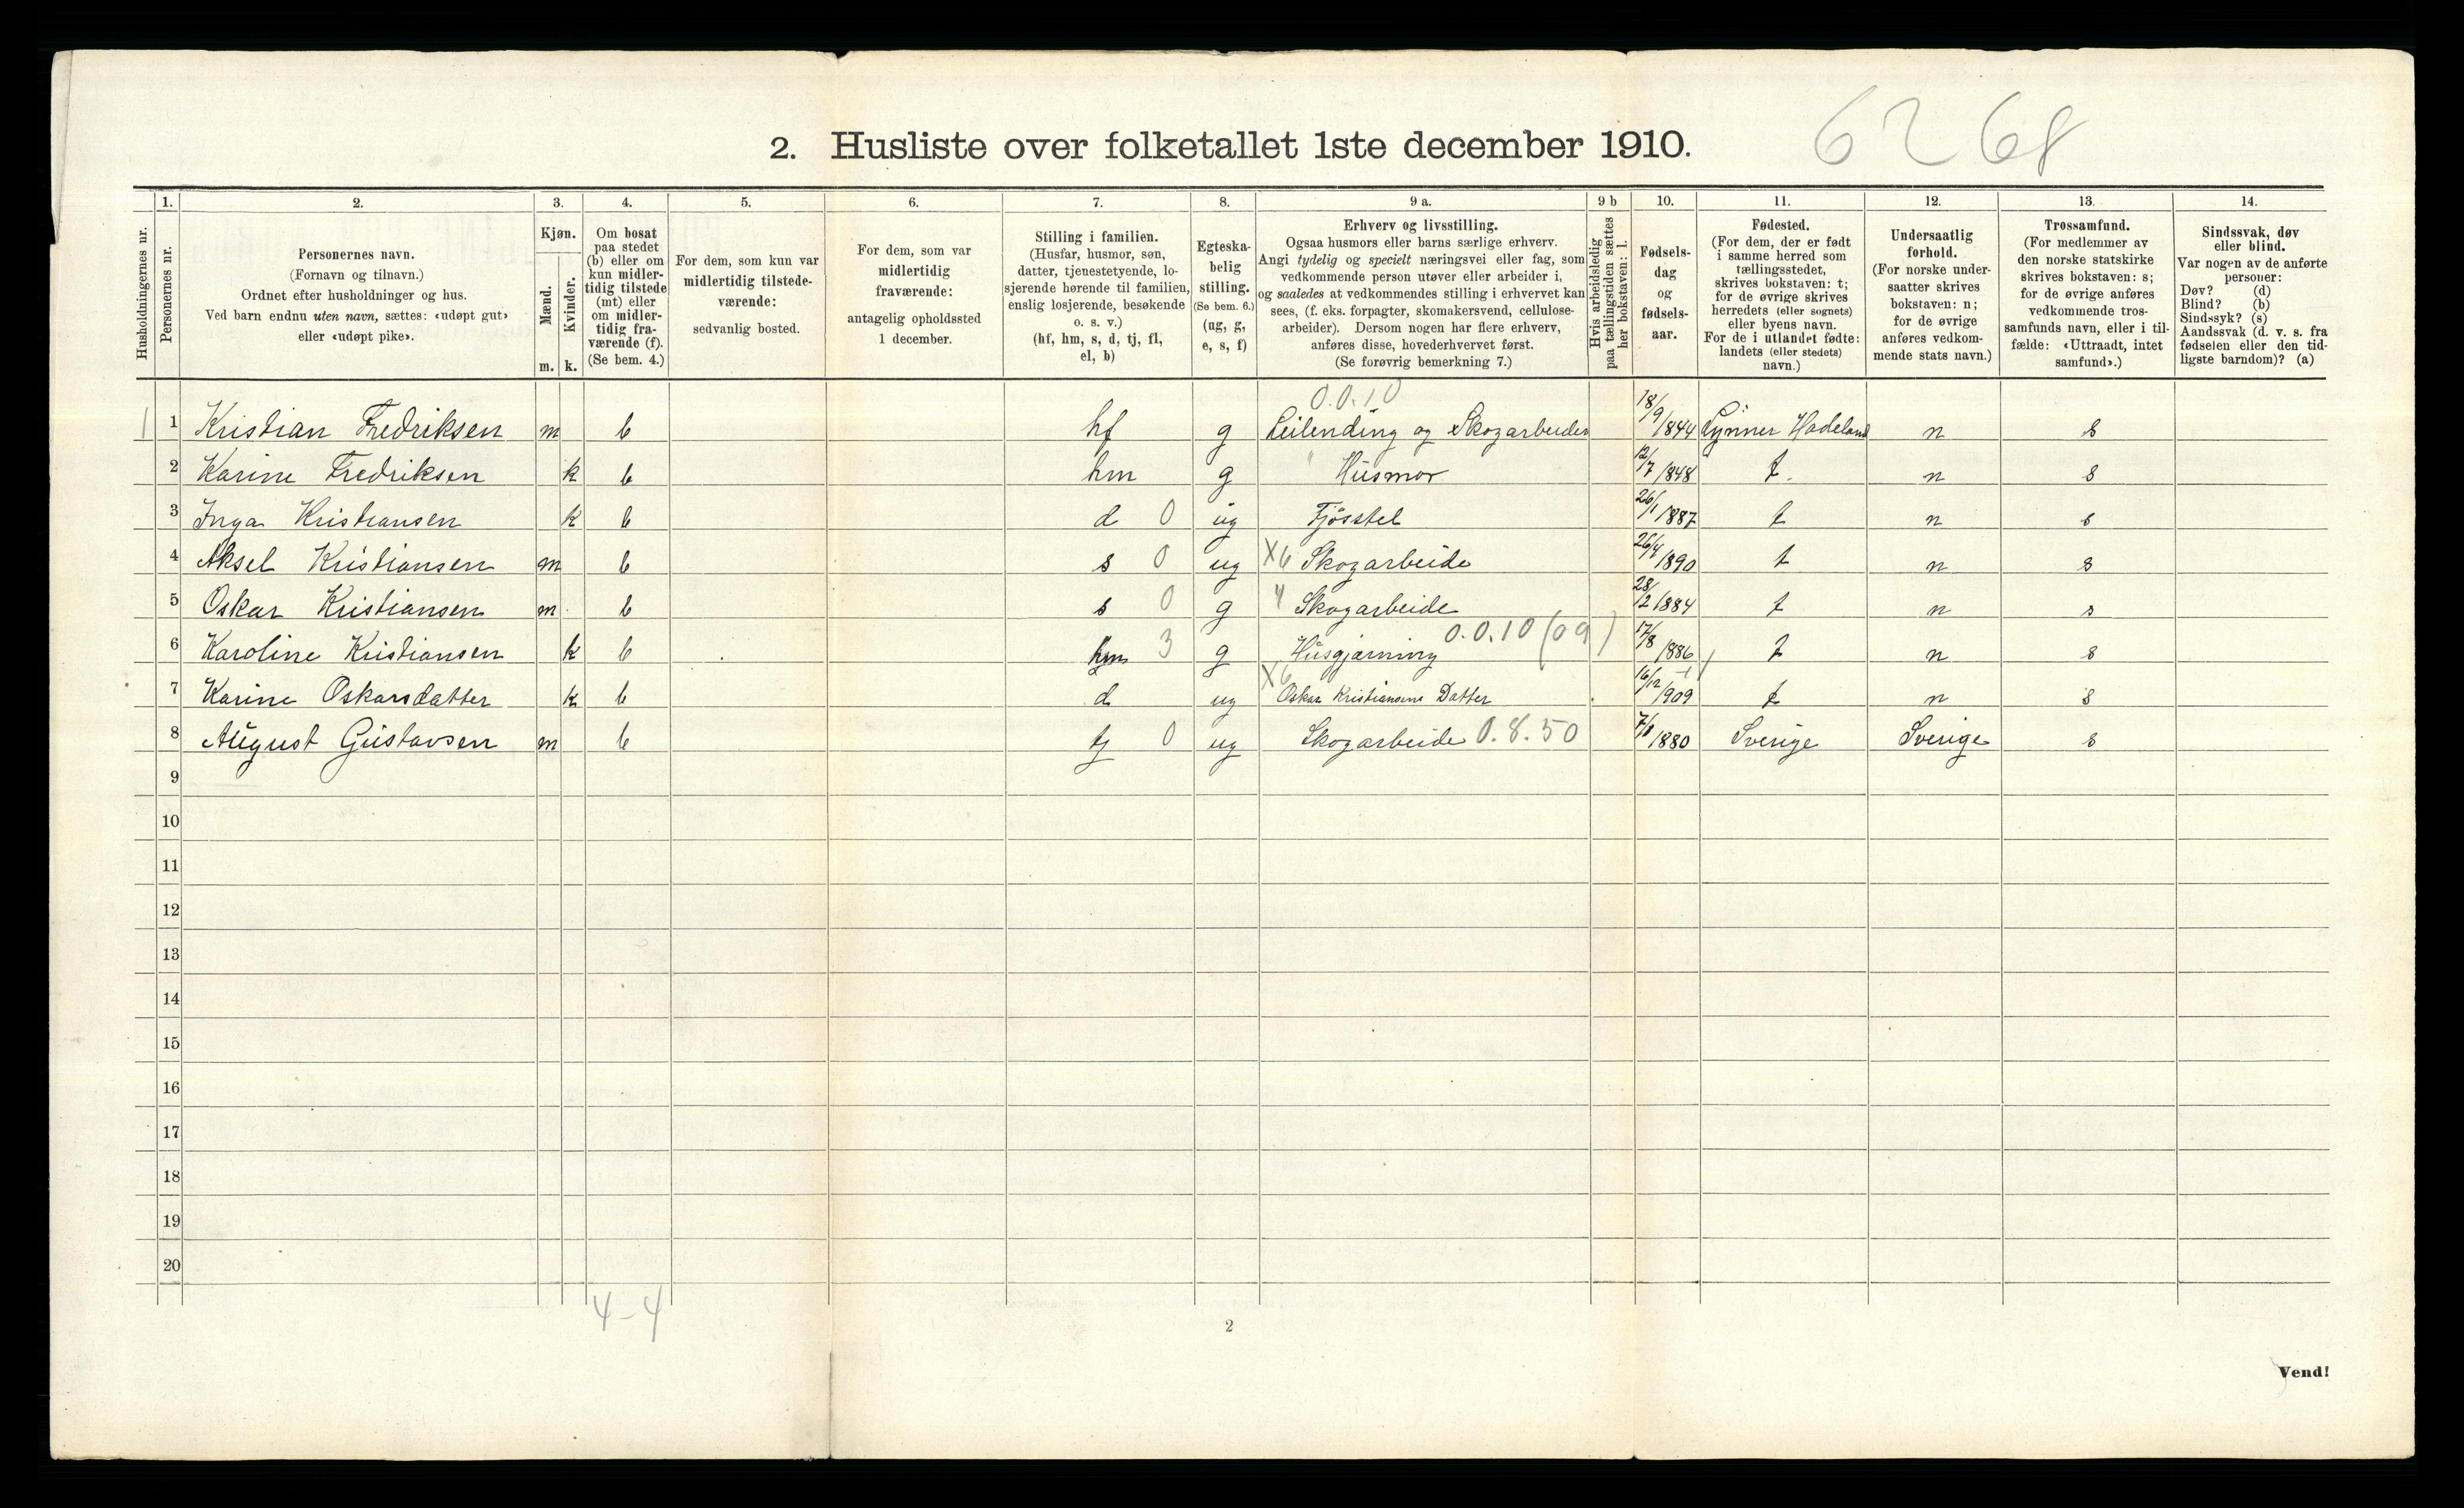 2. Husliste over folketallet 1ste december 1910.
62 68
Husholdningernes nr.
1. Personernes nr.
2. Personernes navn. (Fornavn og tilnavn.) Ordnet efter husholdninger og hus. Ved barn endnu uten navn, sættes: «udøpt gut» eller «udøpt pike».
3. Kjøn. Mænd. m. Kvinder. k.
4. Om bosat paa stedet (b) eller om kun midlertidig tilstede (mt) eller om midlertidig fraværende (f). (Se bem. 4.)
5. For dem, som kun var midlertidig tilstedeværende: sedvanlig bosted.
6. For dem, som var midlertidig fraværende: antagelig opholdssted 1 december.
7. Stilling i familien. (Husfar, husmor, søn, datter, tjenestetyende, losjerende hørende til familien, enslig losjerende, besøkende o. s. v.) (hf, hm, s, d, tj, fl, el, b)
8. Egteskabelig stilling. (Se bem. 6.) (ug, g, e, s, f)
9 a. Erhverv og livsstilling. Ogsaa husmors eller barns særlige erhverv. Angi tydelig og specielt næringsvei eller fag, som vedkommende person utøver eller arbeider i, og saaledes at vedkommendes stilling i erhvervet kan sees, (f. eks. forpagter, skomakersvend, cellulosearbeider). Dersom nogen har flere erhverv, anføres disse, hovederhvervet først. (Se forøvrig bemerkning 7.)
9 b Hvis arbeidsledig paa tællingstiden sættes her bokstaven: l.
10. Fødselsdag og fødselsaar.
11. Fødested. (For dem, der er født i samme herred som tællingsstedet, skrives bokstaven: t; for de øvrige skrives herredets (eller sognets) eller byens navn. For de i utlandet fødte: landets (eller stedets) navn.)
12. Undersaatlig forhold. (For norske undersaatter skrives bokstaven: n; for de øvrige anføres vedkommende stats navn.)
13. Trossamfund. (For medlemmer av den norske statskirke skrives bokstaven: s; for de øvrige anføres vedkommende trossamfunds navn, eller i tilfælde: «Uttraadt, intet samfund».)
14. Sindssvak, døv eller blind. Var nogen av de anførte personer: Døv? (d) Blind? (b) Sindssyk? (s) Aandssvak (d. v. s. fra fødselen eller den tidligste barndom)? (a)
0.0.10
1 1 Kristian Fredriksen m b hf g Leilending og Skogarbeider 18/9/1844 Lynner Hadeland n s
2 Karine Fredriksen k b hm g " Husmor 12/7 1848 t. n s
3 Inga Kristiansen k b d 0 ug Fjösstel 26/1 1887 t n s
4 Aksel Kristiansen m b s 0 ug X6 Skogarbeide 26/4 1890 t n s
5 Oskar Kristiansen m b s 0 g " Skogarbeide 28/2 1884 t n s
6 Karoline Kristiansen k b hm 3 g Husgjærning 0.0.10 (09) 17/8 1886 t n s
7 Karine Oskarsdatter k b d ug X6 Oskar Kristiansens Datter 16/12 1909 t n s
8 August Gustavsen m b tj 0 ug Skogarbeide 0.8.50 7/8 1880 Sverige Sverige s
9
10
11
12
13
14
15
16
17
18
19
20
4-4
2
Vend!